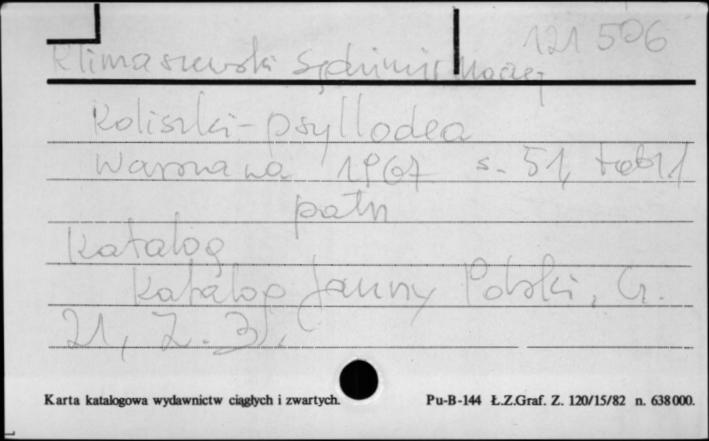 121 506
Klimaszewski Sędzimir Maciej
Koliszki - psyllodea
Warszawa 1967 s. 51, tabl 1
Katalog
Katalog fauny Polski, Cz.
21, Z. 3,
Karta katalogowa wydawnictw ciągłych i zwartych.
Pu-B-144 Ł.Z.Graf. Z. 120/15/82 n. 638 000.